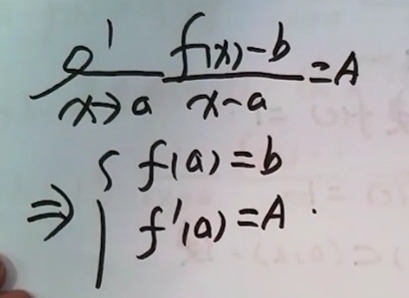 lim x→a (f(x)-b)/(x-a) = A
⇒ { f(a)=b
f'(a)=A.